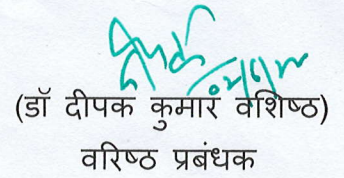 (डॉ दीपक कुमार वशिष्ठ)
वरिष्ठ प्रबंधक